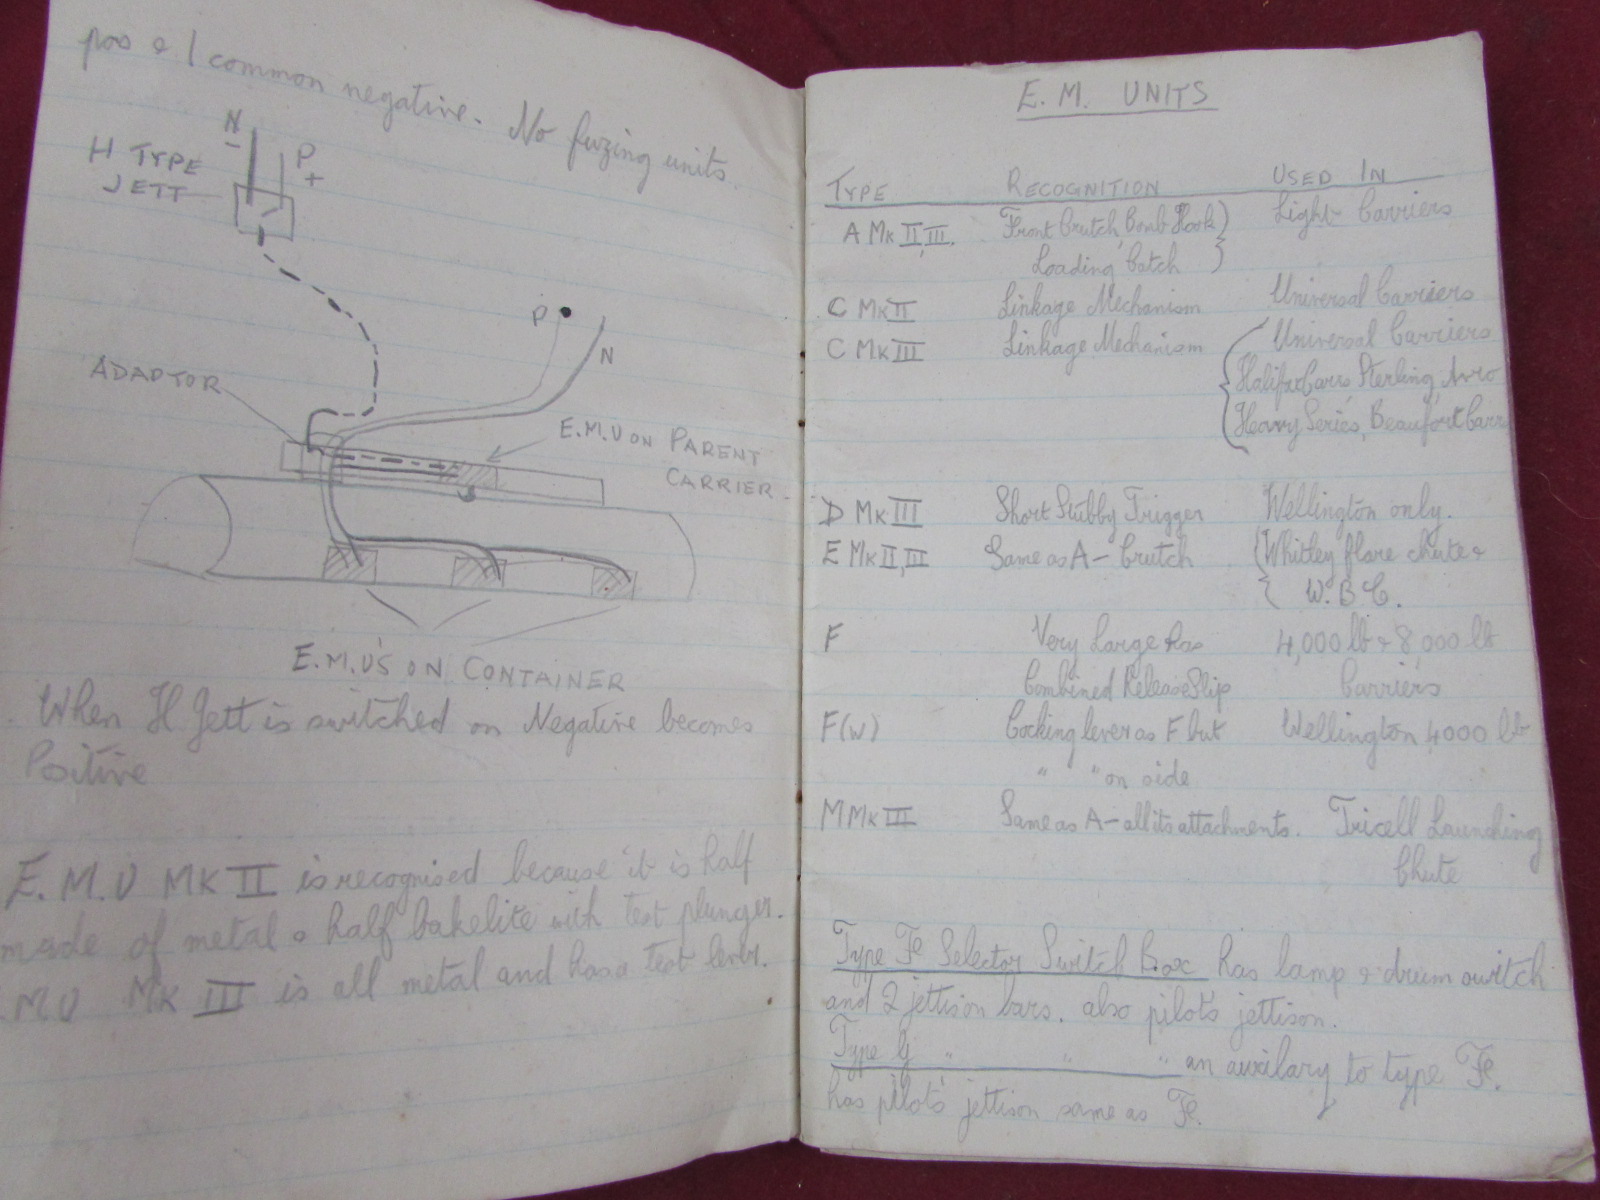 pos & 1 common negative. No fuzing units.
N
-
P
+
H TYPE
JETT
P
N
ADAPTOR
E.M.U ON PARENT
CARRIER
E.M.U'S ON CONTAINER
When H Jett is switched on Negative becomes
Positive
E.M.U MK II is recognised because it is half
made of metal & half bakelite with test plunger.
.M U MK III is all metal and has a test lever.
E. M. UNITS
TYPE RECOGNITION USED IN
A MK II, III. Front Crutch, Bomb Hook } Light Carriers
Loading Catch
C MK II Linkage Mechanism Universal Carriers
C MK III Linkage Mechanism { Universal Carriers
Halifax Carrs, Sterling, Avro
Heavy Series, Beaufort Carr
D MK III Short Stubby Trigger Wellington only.
E MK II, III Same as A - Crutch { Whitley flare chute &
W. B C.
F Very Large has 4,000 lb & 8,000 lb
Combined Release Slip Carriers
F(W) Cocking lever as F but Wellington 4000 lb
" " on side
M MK III Same as A - all its attachments. Tricell Launching
Chute
Type Fe Selector Switch Box has lamp & drum switch
and 2 jettison bars. also pilots jettison.
Type G " " " an auxilary to type Fe.
has pilots jettison same as Fe.